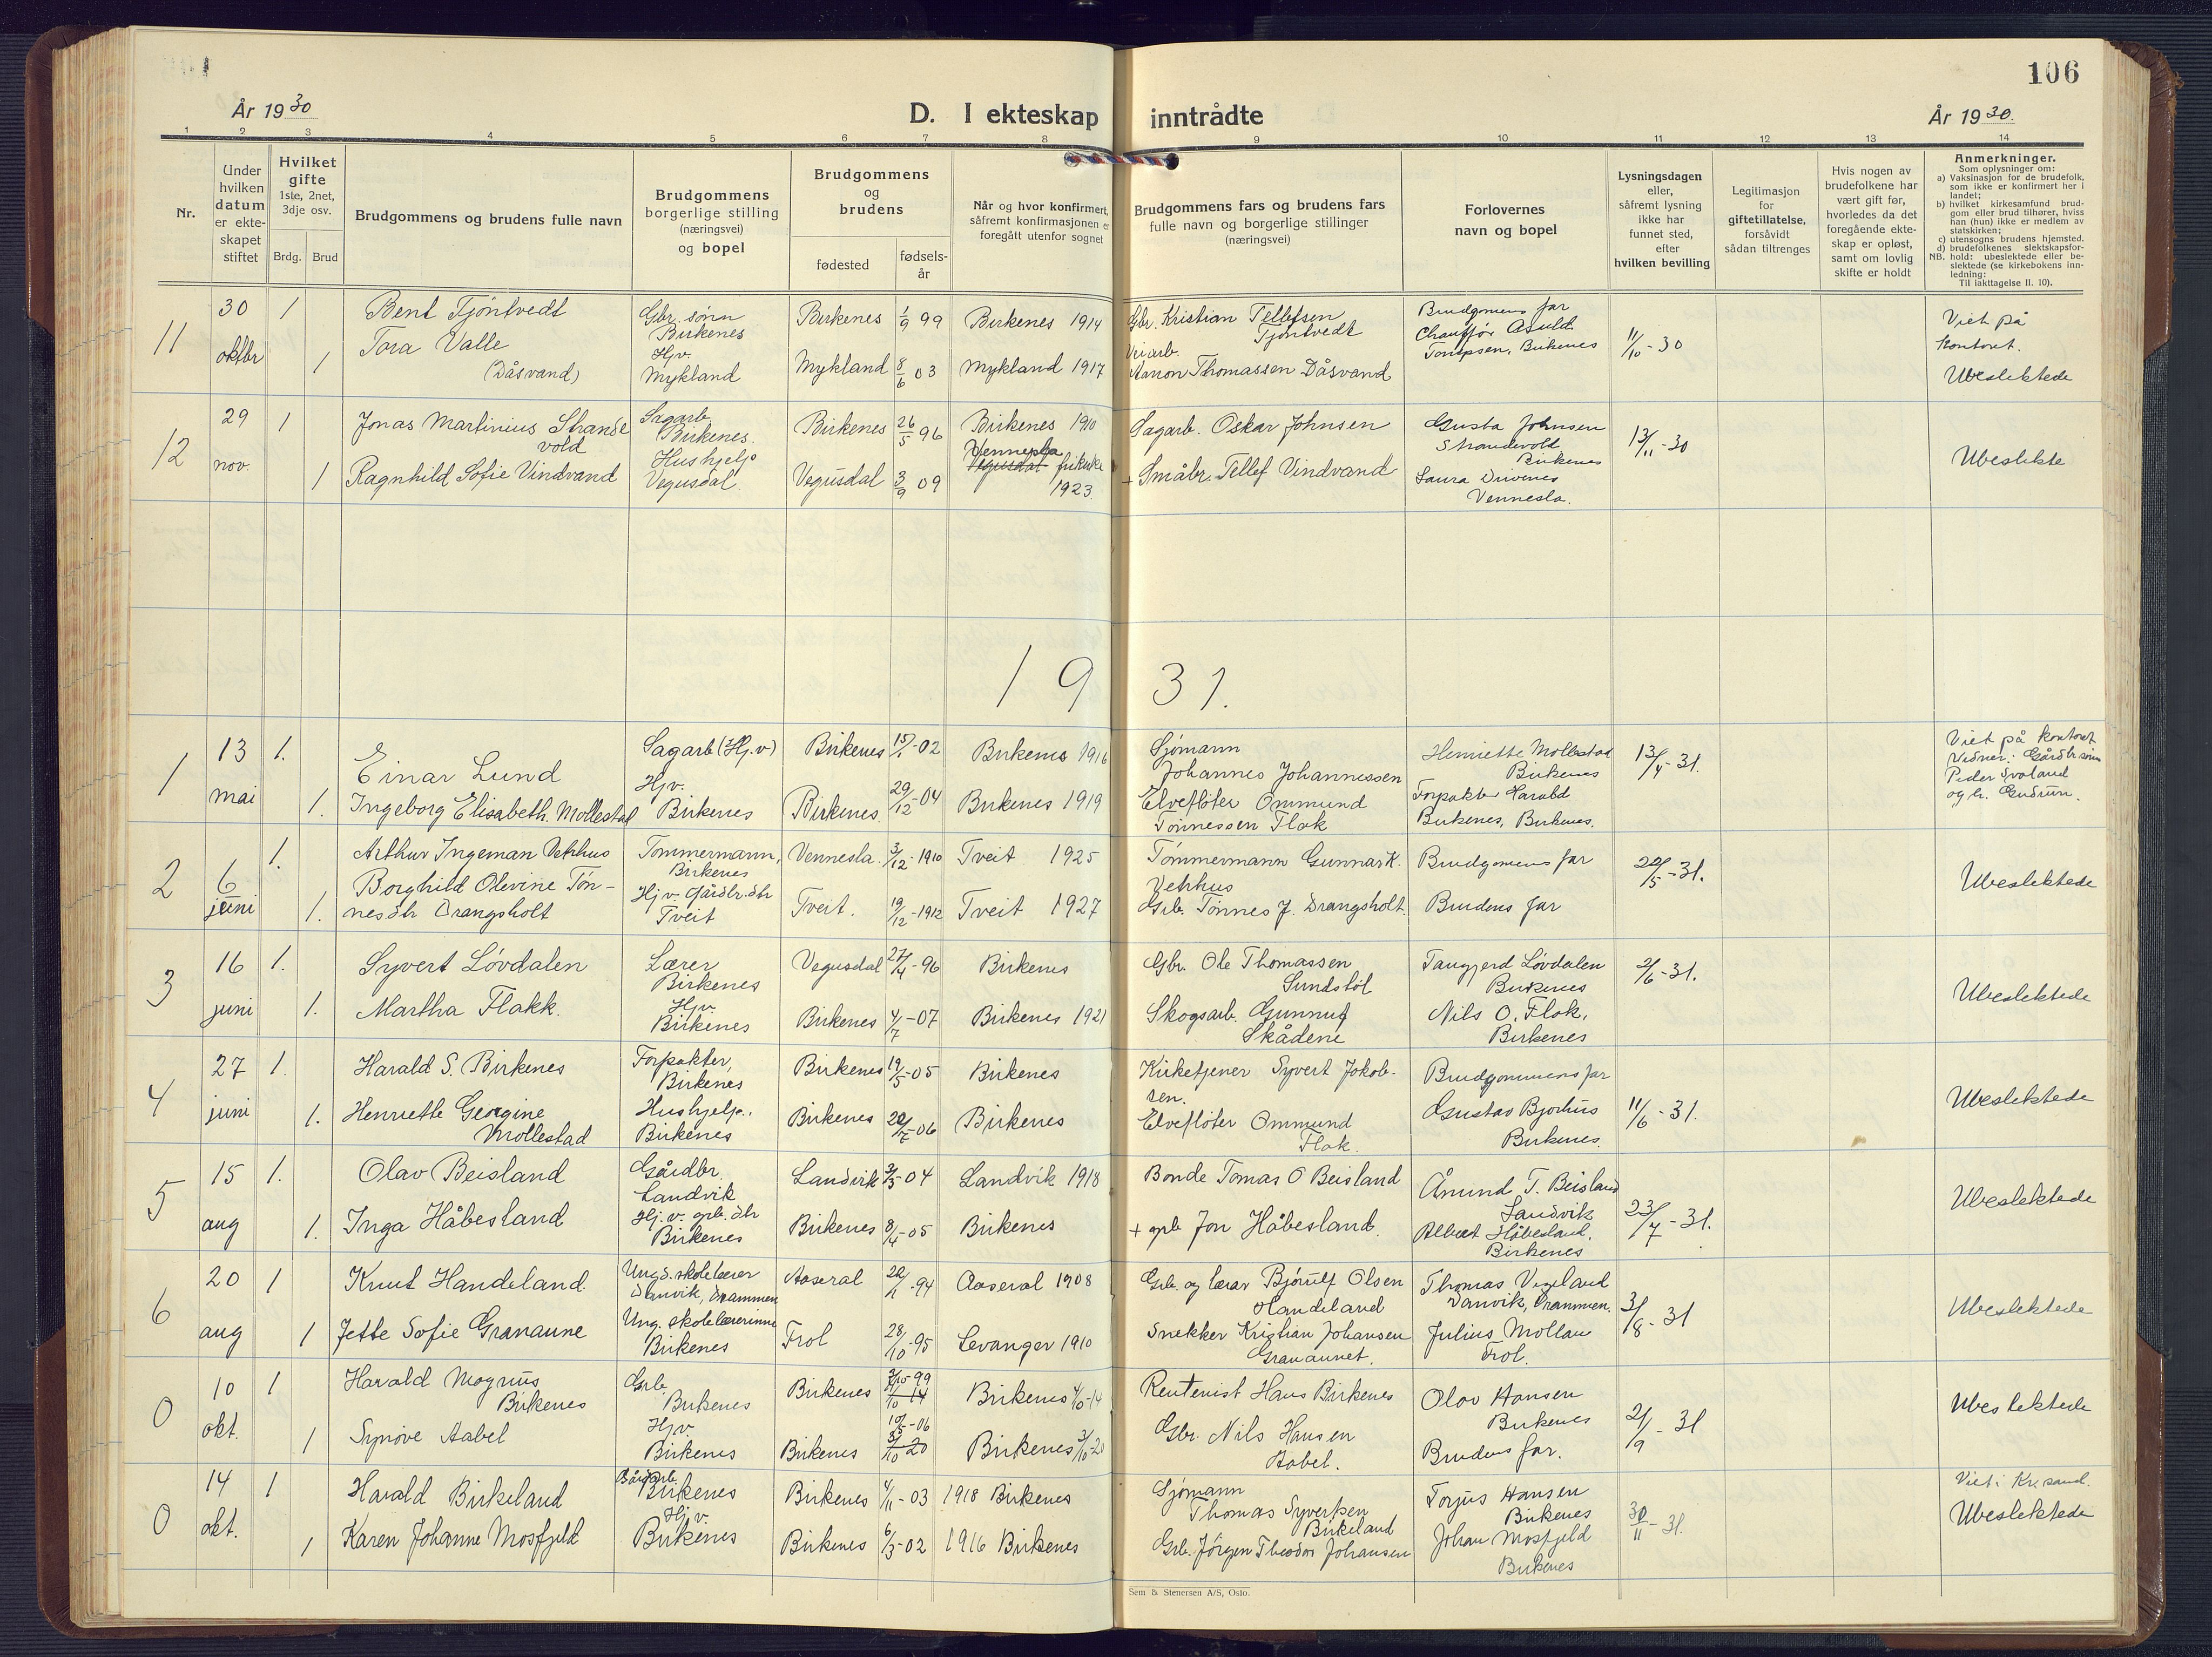 106
År 1930
D. I ekteskap inntrådte
År 1930.
1 2 3 4 5 6 7 8 9 10 11 12 13 14
Nr.
Under hvilken datum er ekteskapet stiftet
Hvilket gifte 1ste, 2net, 3dje osv.
Brdg. Brud
Brudgommens og brudens fulle navn
Brudgommens borgerlige stilling (næringsvei) og bopel
Brudgommens og brudens
fødested
fødsels-år
Når og hvor konfirmert, såfremt konfirmasjonen er foregått utenfor sognet
Brudgommens fars og brudens fars fulle navn og borgerlige stillinger (næringsvei)
Forlovernes navn og bopel
Lysningsdagen eller, såfremt lysning ikke har funnet sted, efter hvilken bevilling
Legitimasjon for giftetillatelse, forsåvidt sådan tiltrenges
Hvis nogen av brudefolkene har vært gift før, hvorledes da det foregående ekteskap er opløst, samt om lovlig skifte er holdt
Anmerkninger.
Som oplysninger om:
a) Vaksinasjon for de brudefolk, som ikke er konfirmert her i landet;
b) hvilket kirkesamfund brudgom eller brud tilhører, hviss han (hun) ikke er medlem av statskirken;
c) utensogns brudens hjemsted.
d) brudefolkenes slektskapsforhold: ubeslektede eller beslektede (se kirkebokens innledning:
NB.
Til iakttagelse II. 10).
11
30 oktbr
1
Bent Tjöntvedt
Gbr. sönn
Birkenes
Birkenes 1/9 99
Birkenes 1914
Gbr. Kristian Tellefsen
Tjöntvedt
Brudgomens far
11/10-30
Viet på
kontoret.
1
Tora Valle
(Dåsvand)
Hjv.
Mykland
Mykland 8/6 03
Mykland 1917
Aanon Thomassen Dåsvand
Birkenes
Ubeslektede
12
29 nov.
1
Jonas Martinius Strande
vold
Sagarb.
Birkenes.
Birkenes 26/5 96
Birkenes 1910
Sagarb. Oskar Johnsen
Gusta Johnsen
Strandevold
Birkenes
13/11-30
Ubeslekte
1
Ragnhild Sofie Vindvand
Hushjelp
Vegusdal
Vegusdal 3/9 09
Vennesla
Vegusdal frikirke
1923.
+ Småbr. Tellef Vindvand
Laura Drivenes
Vennesla.
1931.
1
13 mai
1.
Einar Lund
Sagarb (Hj.v)
Birkenes 15/1-02
Birkenes 1916
Sjömann
Johannes Johannessen
Henriette Mollestad
Birkenes
13/4-31.
Viet på kontoret
Vidner: Gårdbr.sönn
Peder Svaland
og h. Gudrun.
1.
Ingeborg Elisabeth. Mollestad
Hjv.
Birkenes
Birkenes. 29/12-04
Birkenes 1919
Elveflöter Ommund
Tönnessen Flak
Forpakter Harald
Birkenes, Birkenes.
2
6 juni
1.
Arthur Ingeman Vehhus
Tömmermann,
Birkenes
Vennesla. 3/12-1910
Tveit 1925
Tömmermann Gunnar K.
Vehhus
Brudgomens far
22/5-31.
Ubeslektede
1.
Borghild Olevine Tön-
nesdtr Drangsholt
Hjv. Gårdbr.dtr
Tveit
Tveit. 19/12-1912
Tveit 1927
Grb. Tönnes J. Drangsholt.
Brudens far
3
16 juni
1.
Syvert Lövdalen
Lærer
Birkenes
Vegusdal 27/4-96
Birkenes
Gbr. Ole Thomassen
Sundstöl
Tangjerd Lövdalen
Birkenes
2/6-31.
Ubeslektede
1.
Martha Flakk.
Hjv.
Birkenes
Birkenes 4/7-07
Birkenes 1921
Skogsarb. Gunnuf
Skådene
Nils O. Flak,
Birkenes
4
27 juni
1.
Harald S. Birkenes
Forpakter,
Birkenes
Birkenes 19/5-05
Birkenes
Kirketjener Syvert Jokob-
sen.
Brudgommens far
11/6-31.
Ubeslektede
1.
Henriette Georgine
Mollestad
Hushjelp.
Birkenes
Birkenes 22/7-06
Birkenes
Elveflöter Ommund
Flak.
Gustav Bjorhus
Birkenes.
5
15 aug
1.
Olav Beisland
Gårdbr.
Landvik
Landvik 3/3-04
Landvik 1918
Bonde Tomas O Beisland
Ånund T. Beisland
Landvik
23/7-31.
Ubeslektede
1.
Inga Håbesland
Hj.v. grb. dtr
Birkenes
Birkenes 8/4-05
Birkenes
+ grb Jon Håbesland.
Albert Håbesland,
Birkenes
6
20 aug
1
Knut Handeland.
Ungd.skolelærer
Danvik, Drammen
Aaseral 22/1-94
Aaseral 1908
Grb. og lærar Bjørulf Olsen
Handeland
Thomas Vigeland
Danvik, Drammen.
3/8-31
Ubeslektede
1
Jette Sofie Granaune
Ung. skolelærerinne
Birkenes
Frol 28/10-95
Levanger 1910
Snekker Kristian Johansen
Granaunet.
Julius Mollan
Frol.
0
10 okt.
1
Harald Magnus
Birkenes
Grb.
Birkenes
Birkenes
Birkenes 4/10-14
Rentenist Hans Birkenes
Olav Hansen
Birkenes
21/9-31
Ubeslektede
1
Synöve Aabel
Hjv.
Birkenes
Birkenes
Birkenes 3/10-20
Gbr. Nils Hansen
Aabel.
Brudens far.
0
14 okt.
1
Harald Birkeland
Birkenes
Birkenes 4/11-03
1918 Birkenes
Sjömann
Thomas Syvertsen
Birkeland
Torjus Hansen
Birkenes
30/11-31.
Viet i Kr.sand.
Ubeslektede
1
Karen Johanne Mosfjeld
Hj.v.
Birkenes
Birkenes 6/3-02
1916 Birkenes
Grb. Jörgen Theodor Johansen
Johan Mosfjeld
Birkenes
Sem & Stenersen A/S, Oslo.